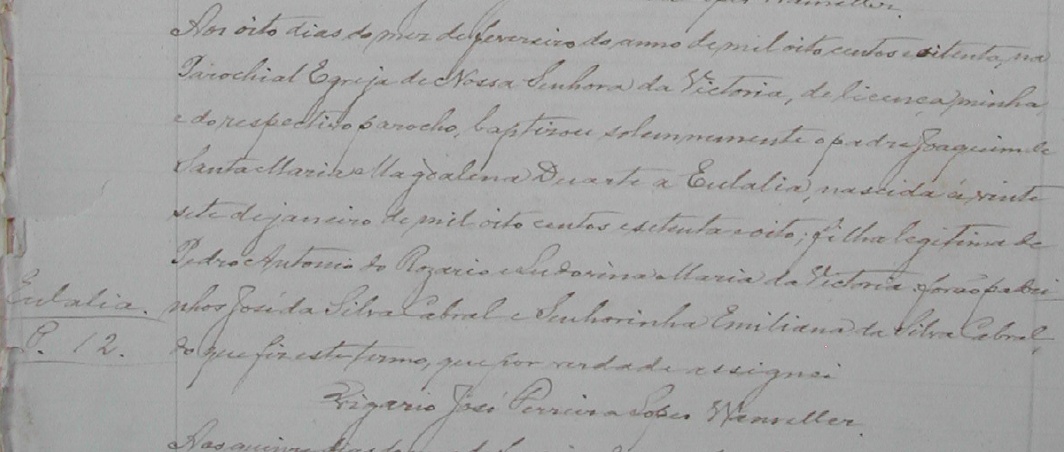 Lopes Wanveller.
Aos oito dias do mez de fevereiro do anno de mil oito centos e oitenta, na
Parochial Egreja de Nossa Senhora da Victoria, de licença minha,
e do respectivo parocho, baptizou solemnemente o padre Joaquim de
Santa Maria Magdalena Duarte a Eulalia, nascida á vinte
sete de janeiro de mil oito centos e setenta e oito; filha legitima de
Pedro Antonio do Rozario e Ludovina Maria da Victoria forão padri-
Eulalia.
P. 12.
nhos José da Silva Cabral e Senhorinha Emiliana da Silva Cabral
do que fiz este termo, que por verdade assignei
Vigario José Pereira Lopes Wanveller.